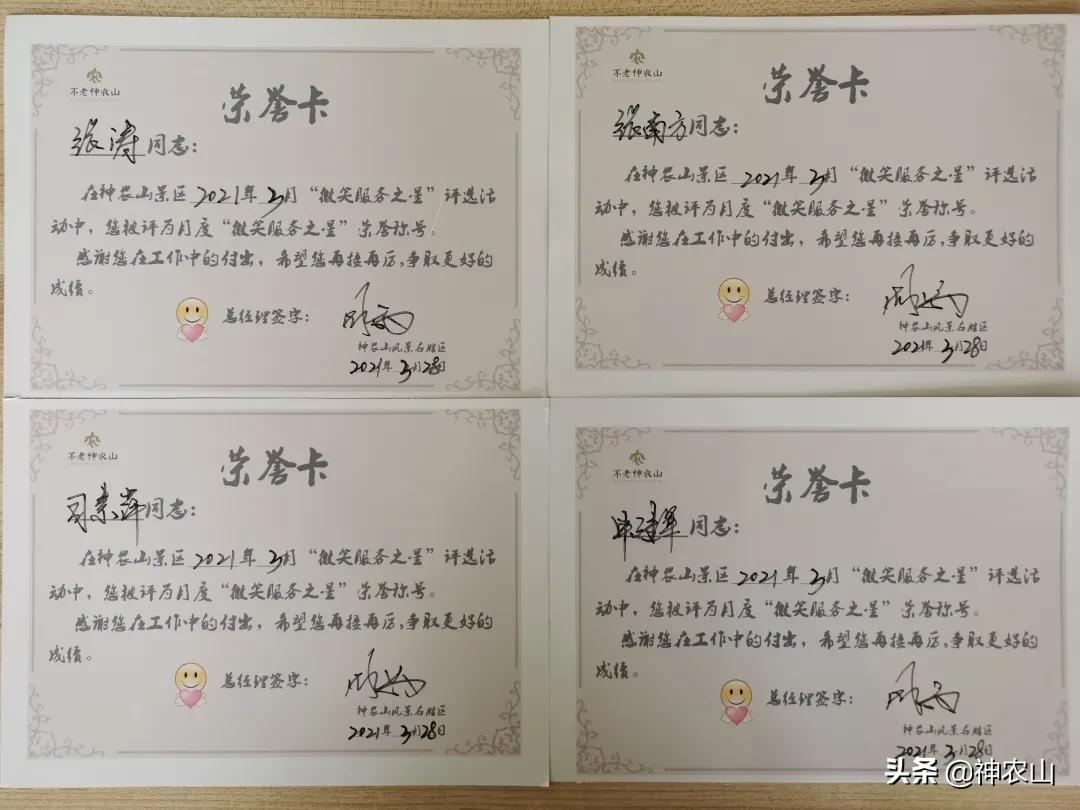 不老神农山
荣誉卡
张涛同志：
在神农山景区2021年3月“微笑服务之星”评选活
动中，您被评为月度“微笑服务之星”荣誉称号。
感谢您在工作中的付出，希望您再接再厉，争取更好的
成绩。
总经理签字：
神农山风景名胜区
2021年3月28日
不老神农山
荣誉卡
张南方同志：
在神农山景区2021年3月“微笑服务之星”评选活
动中，您被评为月度“微笑服务之星”荣誉称号。
感谢您在工作中的付出，希望您再接再厉，争取更好的
成绩。
总经理签字：
神农山风景名胜区
2021年3月28日
不老神农山
荣誉卡
司素萍同志：
在神农山景区2021年3月“微笑服务之星”评选活
动中，您被评为月度“微笑服务之星”荣誉称号。
感谢您在工作中的付出，希望您再接再厉，争取更好的
成绩。
总经理签字：
神农山风景名胜区
2021年3月28日
不老神农山
荣誉卡
同志：
在神农山景区2021年3月“微笑服务之星”评选活
动中，您被评为月度“微笑服务之星”荣誉称号。
感谢您在工作中的付出，希望您再接再厉，争取更好的
成绩。
总经理签字：
神农山风景名胜区
2021年3月28日
头条 @神农山